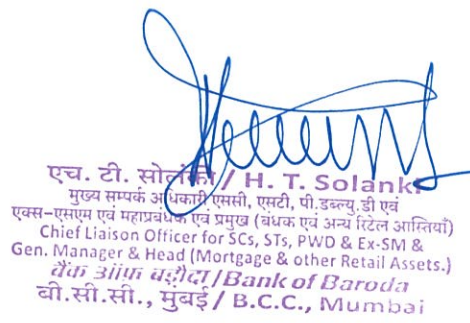 एच. टी. सोलंकी / H. T. Solanki
मुख्य सम्पर्क अधिकारी एससी, एसटी, पी.डब्ल्यु.डी एवं
एक्स-एसएम एवं महाप्रबंधक एवं प्रमुख (बंधक एवं अन्य रिटेल आस्तियाँ)
Chief Liaison Officer for SCs, STs, PWD & Ex-SM &
Gen. Manager & Head (Mortgage & other Retail Assets.)
बैंक ऑफ बड़ौदा / Bank of Baroda
बी.सी.सी., मुंबई / B.C.C., Mumbai